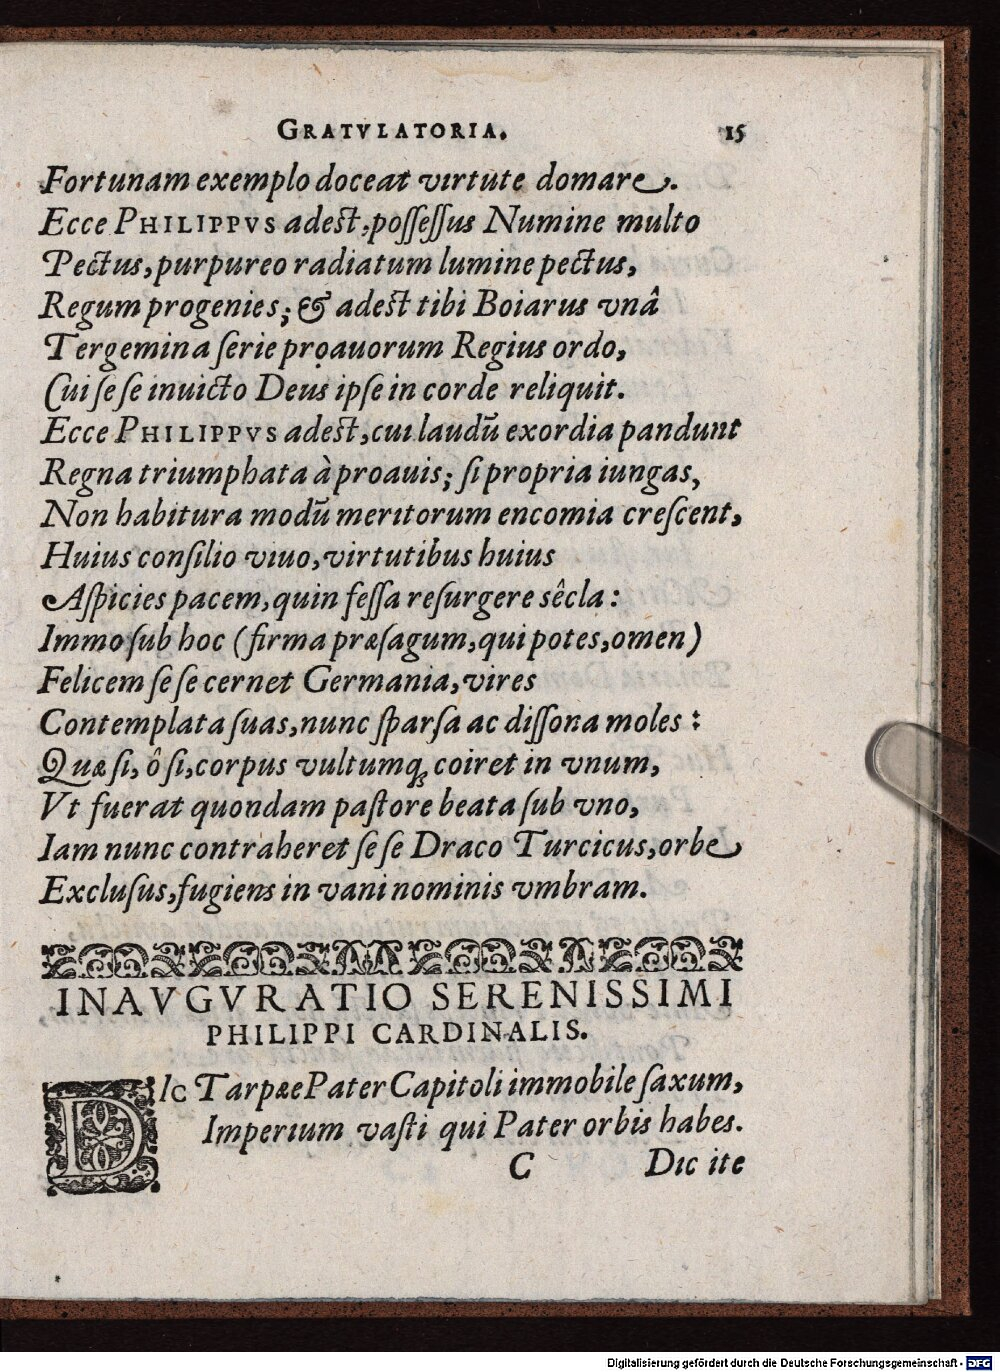 GRATVLATORIA. 15
Fortunam exemplo doceat virtute domare.
Ecce PHILIPPVS adest, possessus Numine multo
Pectus, purpureo radiatum lumine pectus,
Regum progenies; & adest tibi Boiarus vnâ
Tergemina serie proauorum Regius ordo,
Cui se se inuicto Deus ipse in corde reliquit.
Ecce PHILIPPVS adest, cui laudũ exordia pandunt
Regna triumphata à proauis; si propria iungas,
Non habitura modũ meritorum encomia crescent,
Huius consilio viuo, virtutibus huius
Aspicies pacem, quin fessa resurgere sêcla:
Immo sub hoc (firma præsagum, qui potes, omen)
Felicem se se cernet Germania, vires
Contemplata suas, nunc sparsa ac dissona moles:
Quæ si, ô si, corpus vultumq; coiret in vnum,
Vt fuerat quondam pastore beata sub vno,
Iam nunc contraheret se se Draco Turcicus, orbe
Exclusus, fugiens in vani nominis vmbram.
INAVGVRATIO SERENISSIMI
PHILIPPI CARDINALIS.
DIc Tarpæe Pater Capitoli immobile saxum,
Imperium vasti qui Pater orbis habes.
C Dic ite
Digitalisierung gefördert durch die Deutsche Forschungsgemeinschaft - DFG